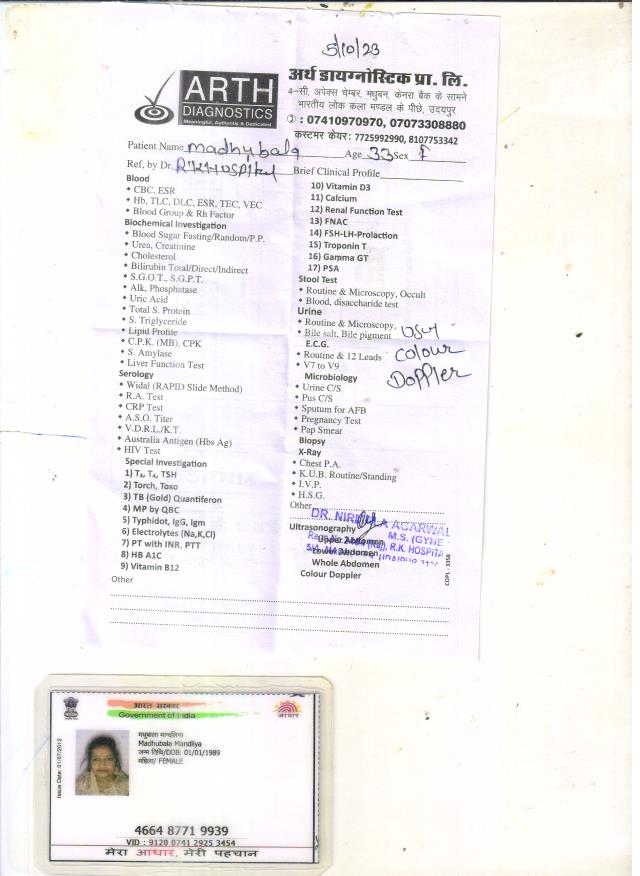 5/10/23
ARTH
DIAGNOSTICS
Meaningful, Authentic & Dedicated
अर्थ डायग्नोस्टिक प्रा. लि.
4-सी, अपेक्स चेम्बर, मधुबन, केनरा बैंक के सामने
भारतीय लोक कला मण्डल के पीछे, उदयपुर
: 07410970970, 07073308880
कस्टमर केयर: 7725992990, 8107753342
Patient Name madhubala Age 33 Sex F
Ref, by Dr. R.K. Hospital Brief Clinical Profile
Blood
CBC, ESR
Hb, TLC, DLC, ESR, TEC, VEC
Blood Group & Rh Factor
Biochemical Investigation
Blood Sugar Fasting/Random/P.P.
Urea, Creatinine
Cholesterol
Bilirubin Total/Direct/Indirect
S.G.O.T., S.G.P.T.
Alk, Phosphatase
Uric Acid
Total S. Protein
S. Triglyceride
Lipid Profile
C.P.K. (MB), CPK
S. Amylase
Liver Function Test
Serology
Widal (RAPID Slide Method)
R.A. Test
CRP Test
A.S.O. Titer
V.D.R.L./K.T.
Australia Antigen (Hbs Ag)
HIV Test
Special Investigation
1) T₃, T₄, TSH
2) Torch, Toxo
3) TB (Gold) Quantiferon
4) MP by QBC
5) Typhidot, IgG, Igm
6) Electrolytes (Na,K,Cl)
7) PT with INR, PTT
8) HB A1C
9) Vitamin B12
Other
10) Vitamin D3
11) Calcium
12) Renal Function Test
13) FNAC
14) FSH-LH-Prolaction
15) Troponin T
16) Gamma GT
17) PSA
Stool Test
Routine & Microscopy, Occult
Blood, disaccharide test
Urine
Routine & Microscopy,
Bile salt, Bile pigment
E.C.G.
Routine & 12 Leads
V7 to V9
Microbiology
Urine C/S
Pus C/S
Sputum for AFB
Pregnancy Test
Pap Smear
Biopsy
X-Ray
Chest P.A.
K.U.B. Routine/Standing
I.V.P.
H.S.G.
Other
Ultrasonography
Upper Abdomen
Lower Abdomen
Whole Abdomen
Colour Doppler
USG
Colour
Doppler
AGARWAL
M.S. (GYNE
R.K. HOSPITA
COPL - 3158
भारत सरकार
Government of India
आधार
Issue Date: 01/07/2012
मधुबाला मान्दलिया
Madhubala Mandliya
जन्म तिथि/DOB: 01/01/1989
महिला/ FEMALE
4664 8771 9939
VID : 9120 0741 2925 3454
मेरा आधार, मेरी पहचान